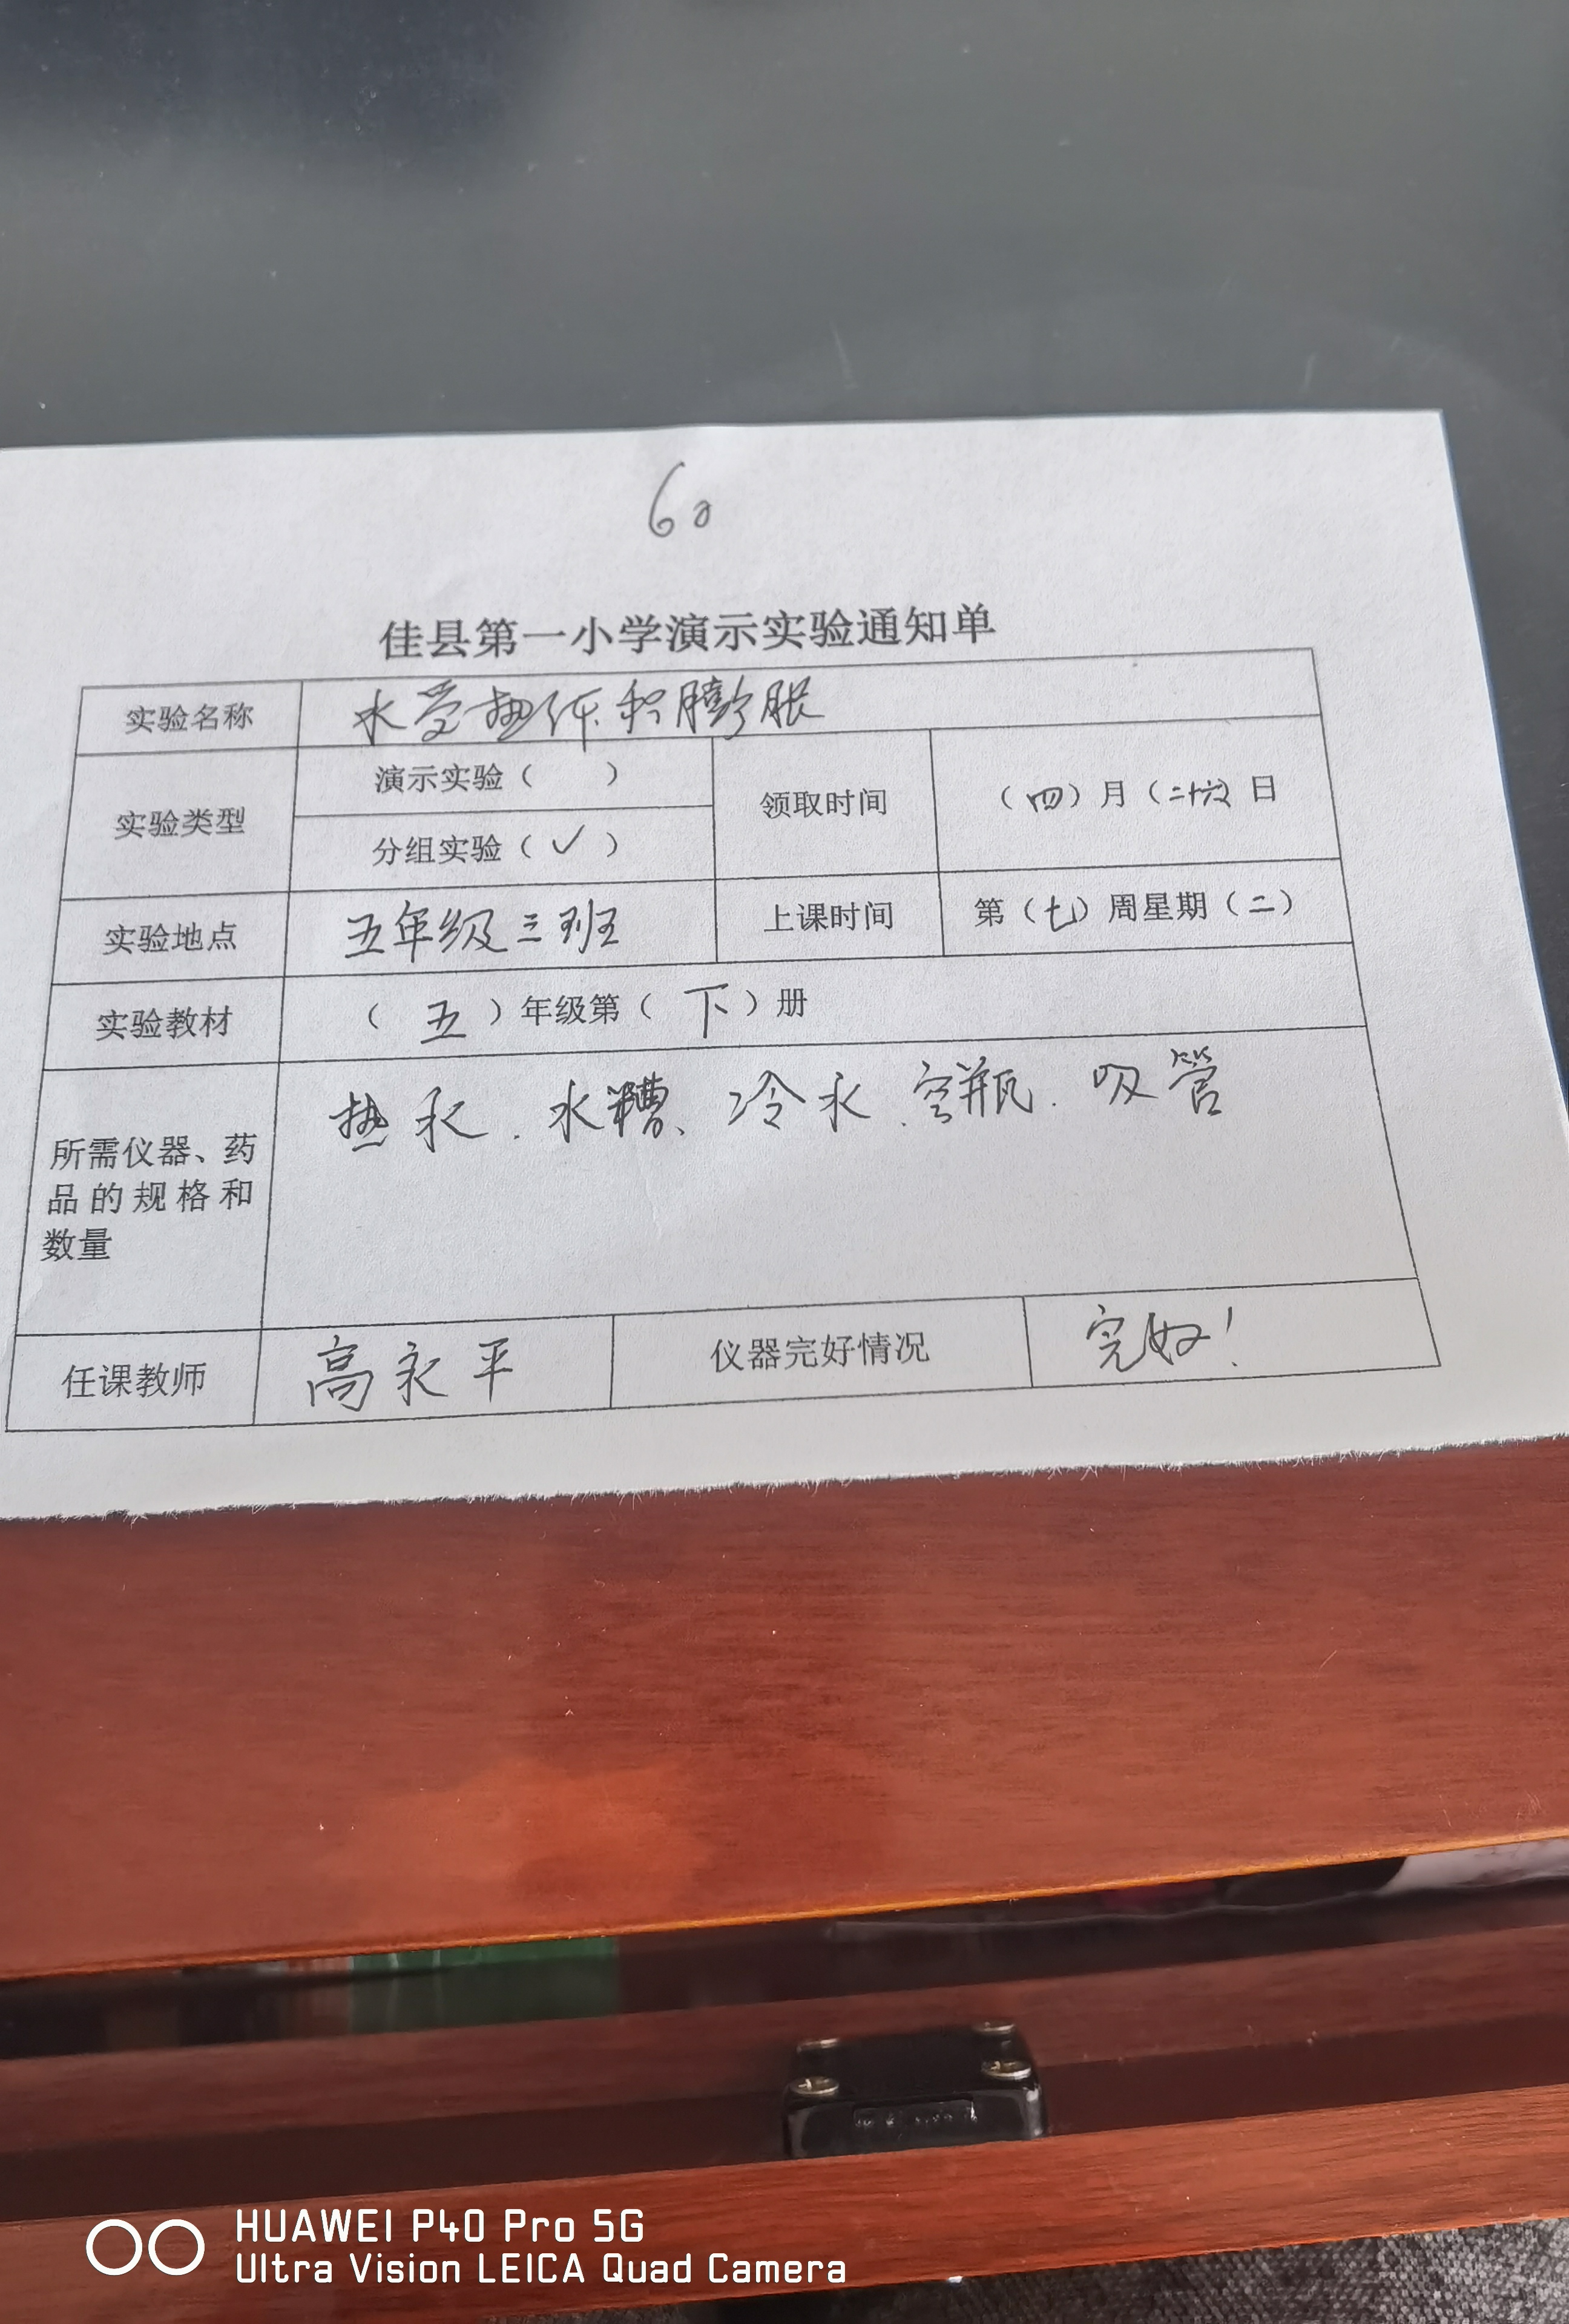 60
佳县第一小学演示实验通知单
实验名称 水受热体积膨胀
实验类型 演示实验（ ） 领取时间 （四）月（二十六）日
分组实验（✓）
实验地点 五年级三班 上课时间 第（七）周星期（二）
实验教材 （五）年级第（下）册
所需仪器、药 热水、水槽、冷水、空瓶、吸管
品的规格和
数量
任课教师 高永平 仪器完好情况 完好！
HUAWEI P40 Pro 5G
Ultra Vision LEICA Quad Camera